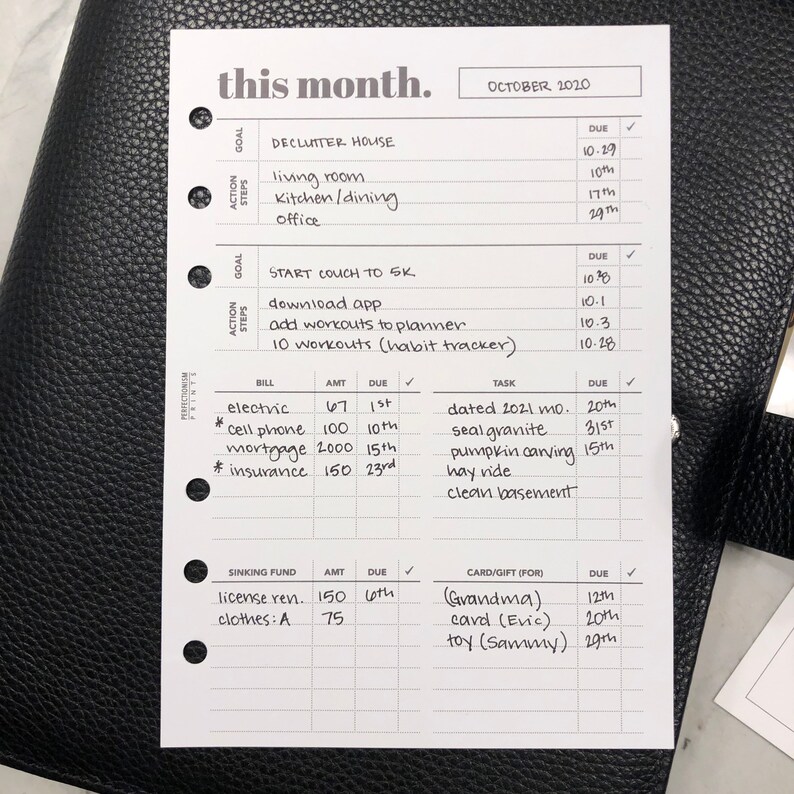 this month. OCTOBER 2020
GOAL DECLUTTER HOUSE DUE ✓
10.29
ACTION STEPS living room 10th
kitchen/dining 17th
office 29th
GOAL START COUCH TO 5K DUE ✓
10.28
ACTION STEPS download app 10.1
add workouts to planner 10.3
10 workouts (habit tracker) 10.28
PERFECTIONISM
PRINTS
BILL AMT DUE ✓
electric 67 1st
* cell phone 100 10th
mortgage 2000 15th
* insurance 150 23rd
TASK DUE ✓
dated 2021 mo. 20th
seal granite 31st
pumpkin carving 15th
hay ride
clean basement
SINKING FUND AMT DUE ✓
license ren. 150 6th
clothes: A 75
CARD/GIFT (FOR) DUE ✓
(Grandma) 12th
card (Eric) 20th
toy (Sammy) 29th